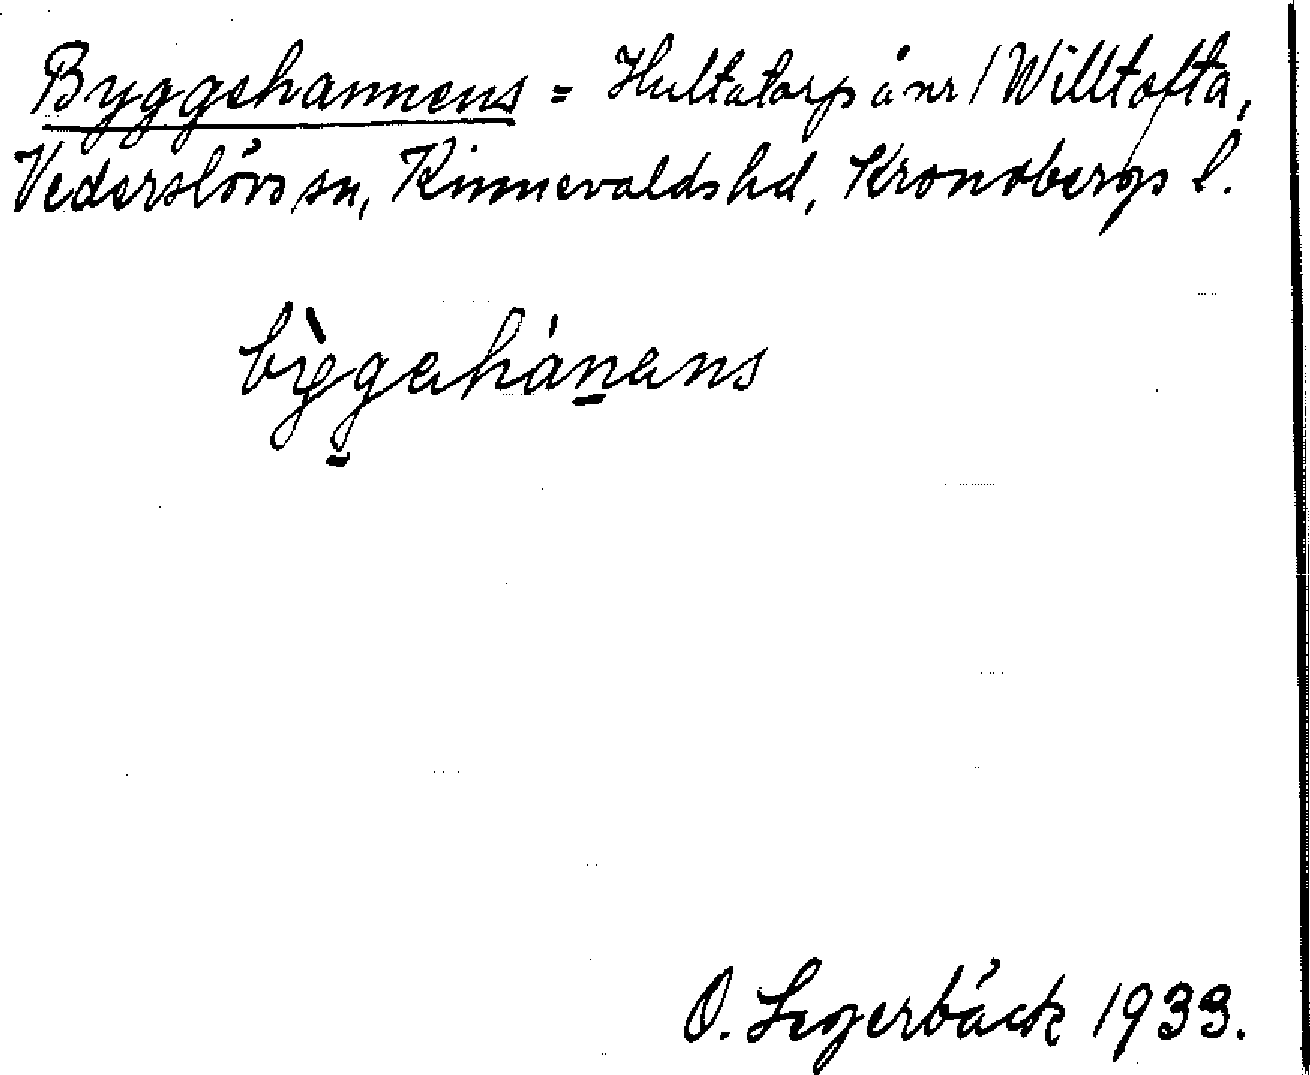 Byggehannens = Hultatorp å nr 1 Willtofta,
Vederslövs sn, Kinnevalds hd, Kronobergs l.
bỳggehánens
O. Segerbäck 1933.